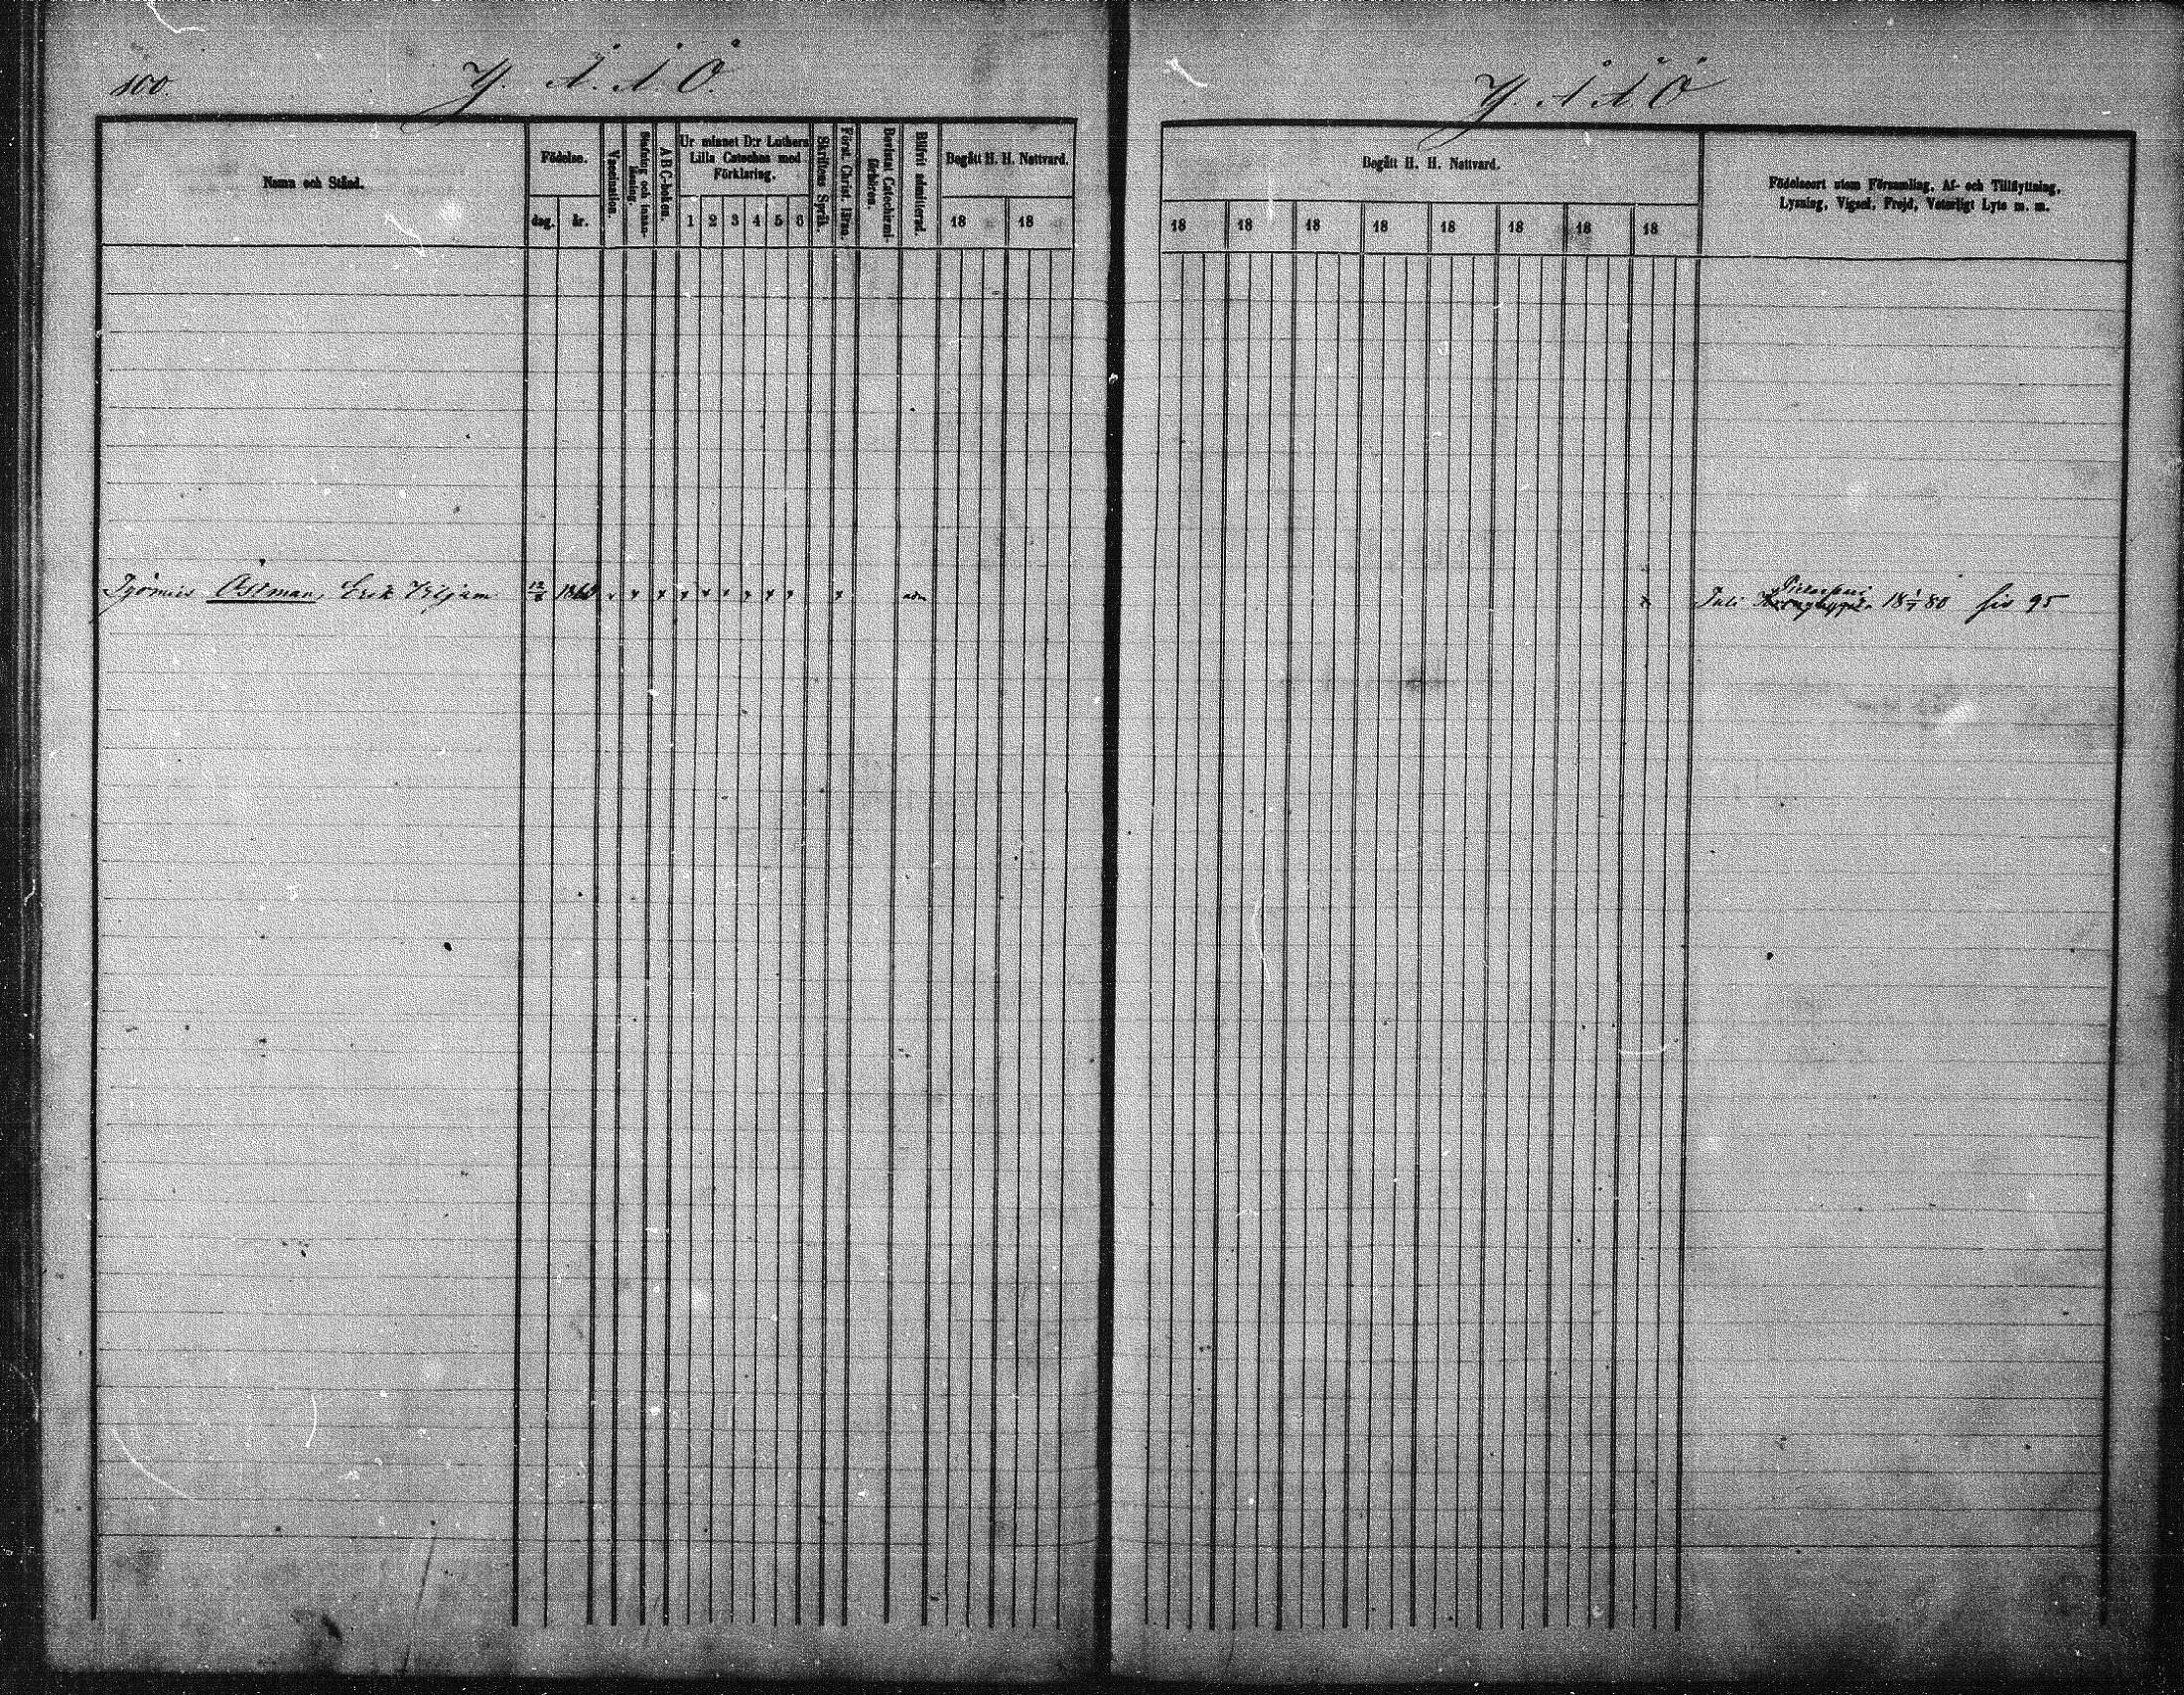 100.
Y. Å. Ä. Ö.
Namn och Stånd.
Födelse.
dag.
år.
Vaccination.
Stafning och innan-
läsning.
A B C-boken.
Ur minnet D:r Luthers
Lilla Cateches med
Förklaring.
1 2 3 4 5 6
Skriftens Språk.
Först. Christ. lärna.
Bevistat Catechismi-
förhören.
Blifvit admitterad.
Begått H. H. Nattvard.
18 18
Työmies Östman, Erik Viljam 12/8 1860 x x x x x x x x x x adm
Y. Å Ä Ö
Begått H. H. Nattvard.
18 18 18 18 18 18 18 18
Födelseort utom Församling, Af- och Tillflyttning,
Lysning, Vigsel, Frejd, Vaterligt Lyte m. m.
Pietarsaari
x Tuli 18 1/7 80 siv 95